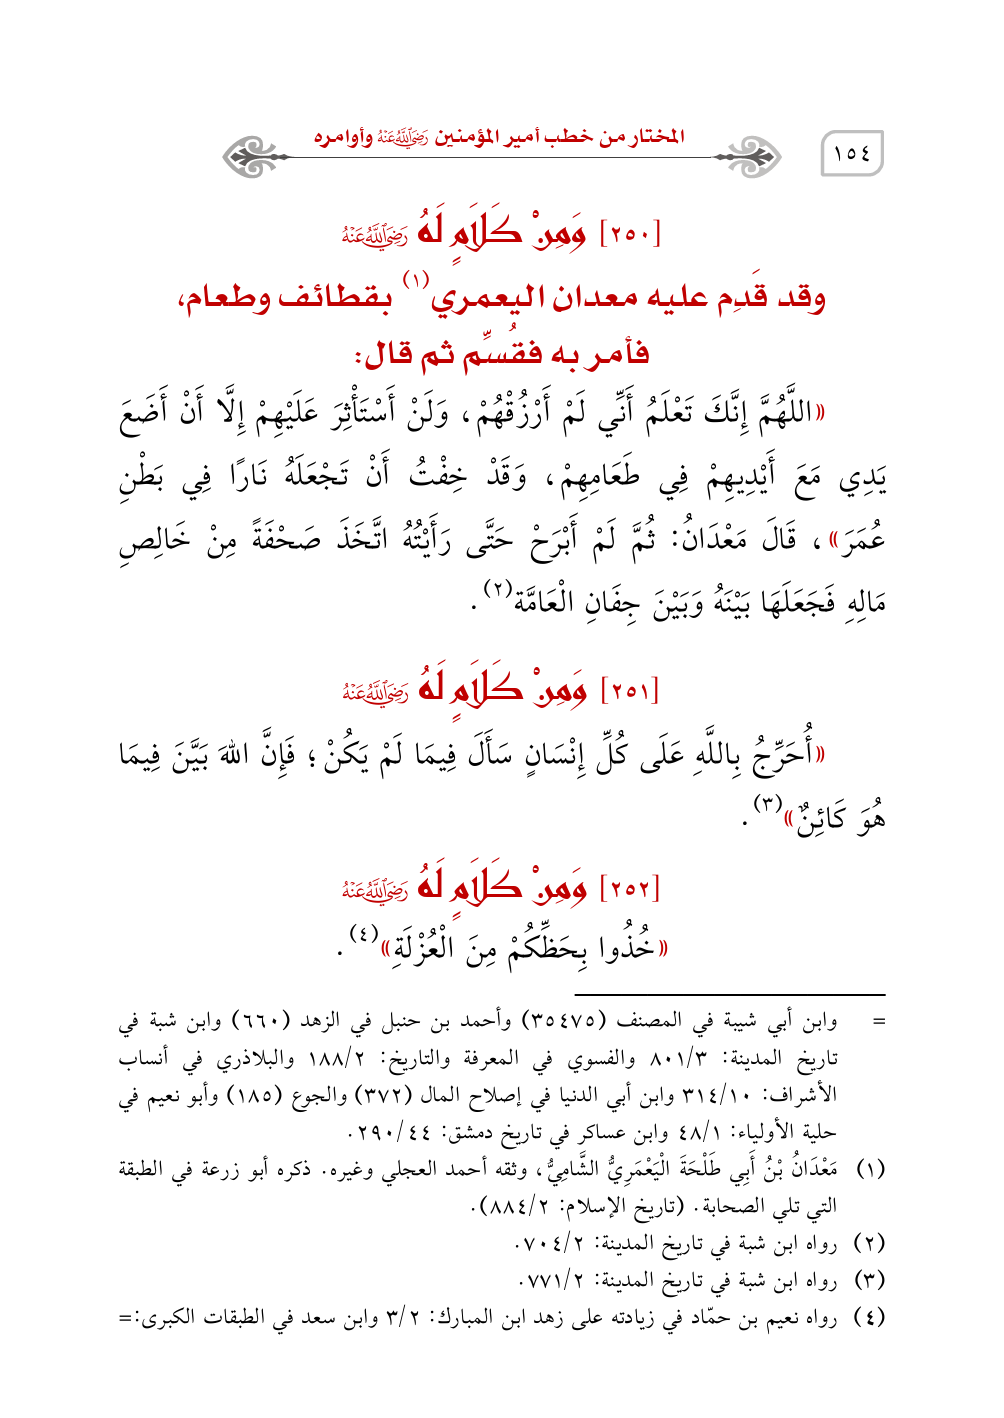 المختار من خطب أمير المؤمنين رَضِيَ اللَّهُ عَنْهُ وأوامره
١٥٤
[٢٥٠] وَمِنْ كَلَامٍ لَهُ رَضِيَ اللَّهُ عَنْهُ
وقد قَدِم عليه معدان اليعمري(١) بقطائف وطعام،
فأمر به فقُسِّم ثم قال:
«اللَّهُمَّ إِنَّكَ تَعْلَمُ أَنِّي لَمْ أَرْزُقْهُمْ، وَلَنْ أَسْتَأْثِرَ عَلَيْهِمْ إِلَّا أَنْ أَضَعَ
يَدِي مَعَ أَيْدِيهِمْ فِي طَعَامِهِمْ، وَقَدْ خِفْتُ أَنْ تَجْعَلَهُ نَارًا فِي بَطْنِ
عُمَرَ»، قَالَ مَعْدَانُ: ثُمَّ لَمْ أَبْرَحْ حَتَّى رَأَيْتُهُ اتَّخَذَ صَحْفَةً مِنْ خَالِصِ
مَالِهِ فَجَعَلَهَا بَيْنَهُ وَبَيْنَ جِفَانِ الْعَامَّة(٢).
[٢٥١] وَمِنْ كَلَامٍ لَهُ رَضِيَ اللَّهُ عَنْهُ
«أُحَرِّجُ بِاللَّهِ عَلَى كُلِّ إِنْسَانٍ سَأَلَ فِيمَا لَمْ يَكُنْ؛ فَإِنَّ اللهَ بَيَّنَ فِيمَا
هُوَ كَائِنٌ»(٣).
[٢٥٢] وَمِنْ كَلَامٍ لَهُ رَضِيَ اللَّهُ عَنْهُ
«خُذُوا بِحَظِّكُمْ مِنَ الْعُزْلَةِ»(٤).
= وابن أبي شيبة في المصنف (٣٥٤٧٥) وأحمد بن حنبل في الزهد (٦٦٠) وابن شبة في
تاريخ المدينة: ٨٠١/٣ والفسوي في المعرفة والتاريخ: ١٨٨/٢ والبلاذري في أنساب
الأشراف: ٣١٤/١٠ وابن أبي الدنيا في إصلاح المال (٣٧٢) والجوع (١٨٥) وأبو نعيم في
حلية الأولياء: ٤٨/١ وابن عساكر في تاريخ دمشق: ٢٩٠/٤٤.
(١) مَعْدَانُ بْنُ أَبِي طَلْحَةَ الْيَعْمَرِيُّ الشَّامِيُّ، وثقه أحمد العجلي وغيره. ذكره أبو زرعة في الطبقة
التي تلي الصحابة. (تاريخ الإسلام: ٨٨٤/٢).
(٢) رواه ابن شبة في تاريخ المدينة: ٧٠٤/٢.
(٣) رواه ابن شبة في تاريخ المدينة: ٧٧١/٢.
(٤) رواه نعيم بن حمّاد في زيادته على زهد ابن المبارك: ٣/٢ وابن سعد في الطبقات الكبرى:=